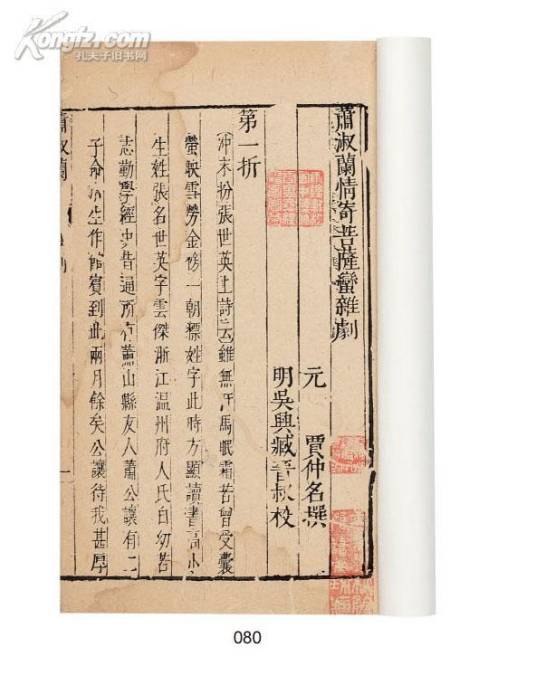 Kongfz.com
孔夫子旧书网
蕭淑蘭情寄菩薩蠻雜劇
元　賈仲名撰
明吳興臧晉叔校
第一折
沖末扮張世英上詩云雖無汗馬眠霜苦曾受囊
螢映雪勞金榜一朝標姓字此時方顯讀書高小
生姓張名世英字雲傑浙江温州府人氏自幼苦
志勤學經史皆通所有蕭山縣友人蕭公讓有二
子命小生作館賓到此兩月餘矣公讓待我甚厚
蕭淑蘭
一
080